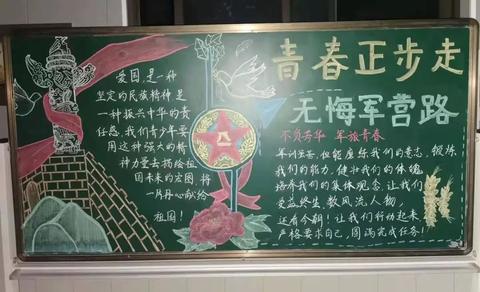 爱国,是一种
坚定的民族精神,是
一种振兴中华的责
任感,我们青少年要
用这种强大的精
神力量去描绘祖
国未来的宏图,将
一片丹心献给
祖国!
八一
青春正步走
无悔军营路
不负芳华 军旅青春
军训虽苦,但能磨练我们的意志,锻炼
我们的能力,健壮我们的体魄,
培养我们的集体观念,让我们
受益终生,数风流人物,
还看今朝!让我们行动起来
严格要求自己,圆满完成任务!